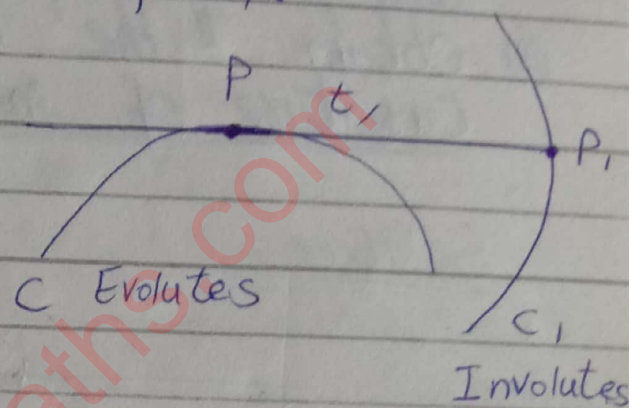 P
t,
P₁
C Evolutes
C₁
Involutes
aths.com